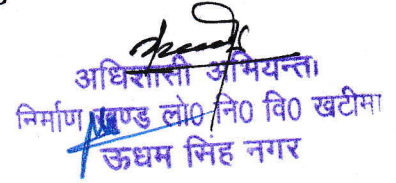 अधिशासी अभियन्ता
निर्माण खण्ड लो0 नि0 वि0 खटीमा
ऊधम सिंह नगर